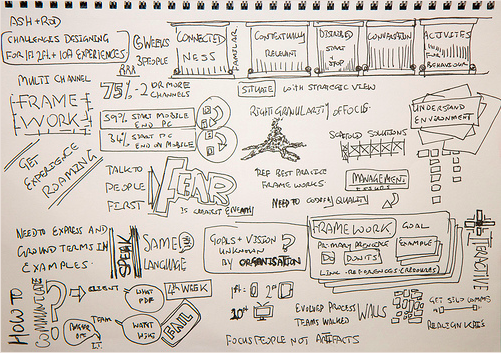 ASH + ROD
CHALLENGES DESIGNING
FOR 1FI 2FL + 10FT EXPERIENCES
6 WEEKS
3 PEOPLE
CONNECTED
NESS
FAMILIAR
CONTEXTUALLY
RELEVANT
DISABLED
START
+
STOP
COMPARISON
ACTIVITIES
BEHAVIOUR
MULTI CHANNEL
FRAME
WORK
75% - 2 OR MORE
CHANNELS
59% START MOBILE
END PC
34% START PC
END ON MOBILE
SITUATE WITH STRATEGIC VIEW
RIGHT GRANULARITY OF FOCUS
SCAFFOLD SOLUTIONS
UNDERSTAND
ENVIRONMENT
GET
EXPERIENCE
ROAMING
TALK TO
PEOPLE
FIRST
FEAR
IS GREATEST ENEMY
DEEP BEST PRACTICE
FRAMEWORKS.
MANAGEMENT
NEED TO CODIFY QUALITY
NEED TO EXPRESS AND
GROUND TERMS IN
EXAMPLES.
SPEAK
SAME
LANGUAGE
GOALS + VISION
UNKNOWN
BY ORGANISATION
?
FRAMEWORK GOAL
PRIMARY PRINCIPLE
EXAMPLE
DO DON'TS
LINK - REFERENCES (RESOURCES)
HOW TO
COMMUNICATE
?
CLIENT
WHAT
PDF
4TH WEEK
TEAM
WANT
WIKI
FAIL
1ST =
2ND
10FT
EVOLVED PROCESS
TEAMS WALKED WALLS
GET SILO COMMS
REALIGN KPI'S
FOCUS PEOPLE NOT ARTIFACTS